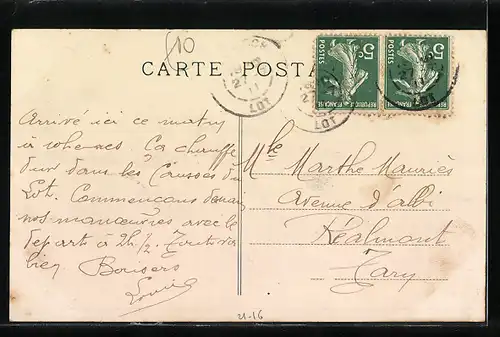 810
CARTE POSTA
5c POSTES REPUBLIQUE FRANÇAISE
5c POSTES REPUBLIQUE FRANÇAISE
LOT
LOT
Arrivé ici ce matin
à Ça chauffe
dur dans les Causses du
Lot. Commençons demain
nos manœuvres avec le
depart à 2h 1/2. Tout va
bien Baisers
Louis
Mlle Marthe Mauriès
Avenue d'albi
Réalmont
Tarn
21-16